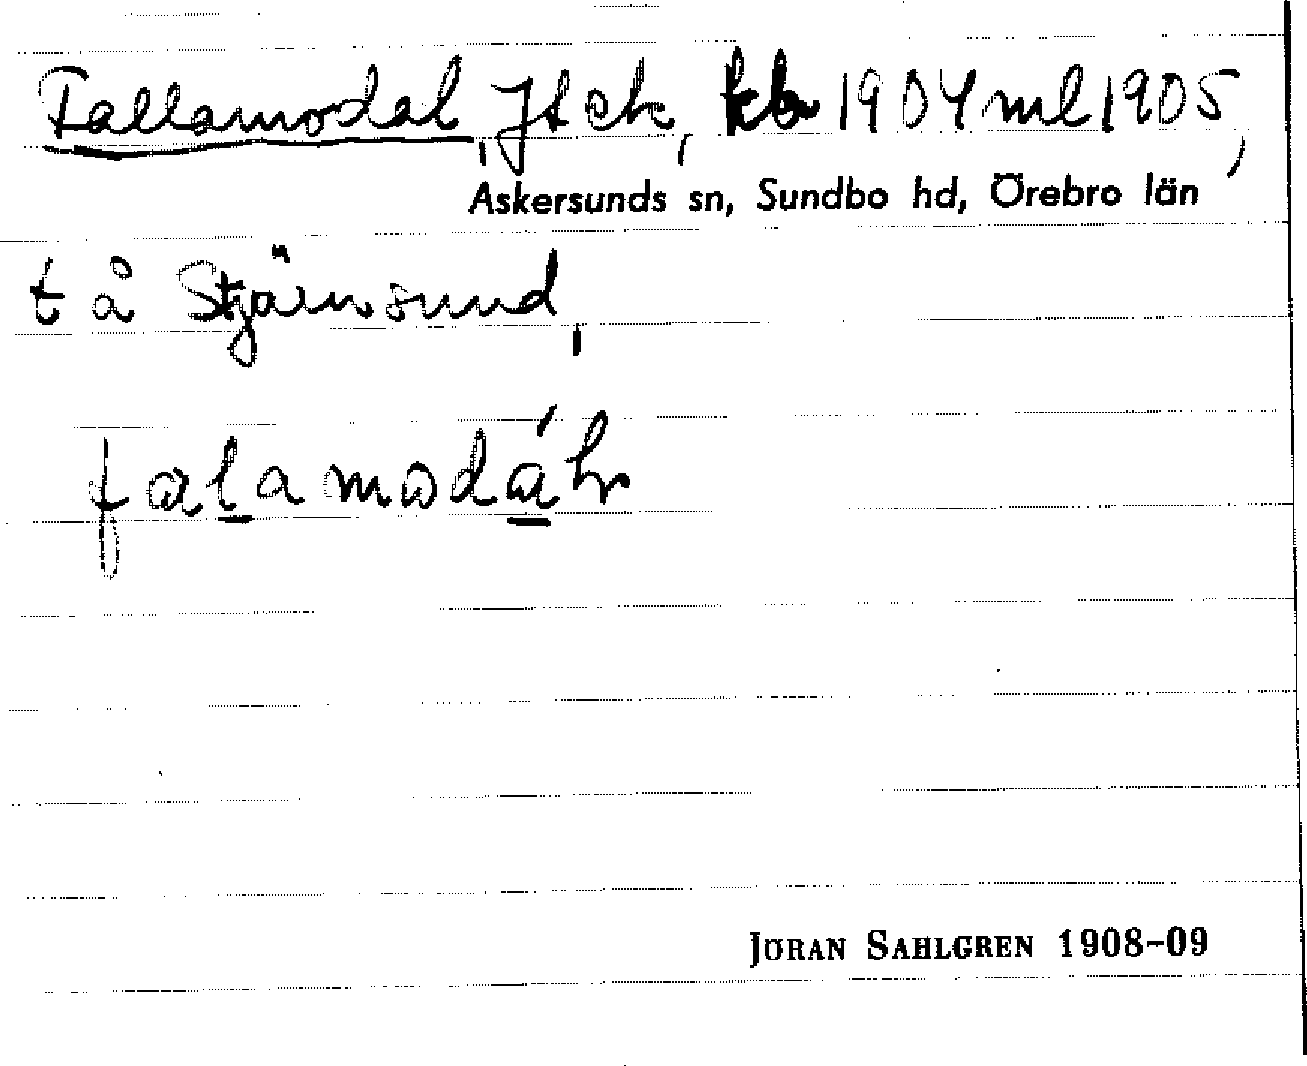 Fallamodal, Jt ek, kb 1904 ml 1905,
Askersunds sn, Sundbo hd, Örebro län
t å Stjärnsund,
falamodáh
JÖRAN SAHLGREN 1908–09